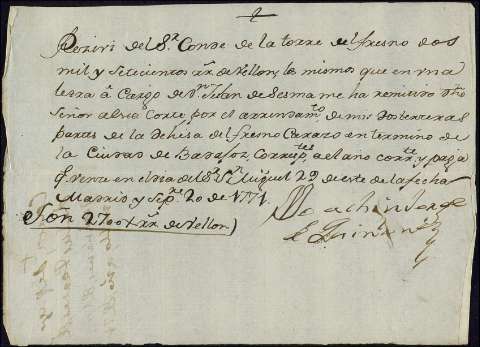 Reziví del Sr. Conde de la torre del fresno dos
mil y setecientos rr. de vellon, los mismos que en una
letra á cargo de Dn. Julian de Sesma me ha remitido dho
Señor a esta Corte por el arrendamto. de mis dos terceras
partes de la dehesa del fresno Carazo en termino de
la Ciudad de Badajoz, Correspt.es a el año corrte. y paga
q. vence en el dia del Sr. Sn. Miguel 29 de este de la fecha
Madrid y Sepre. 20 de 1771
Son 2700 rr. de vellon
Joachin